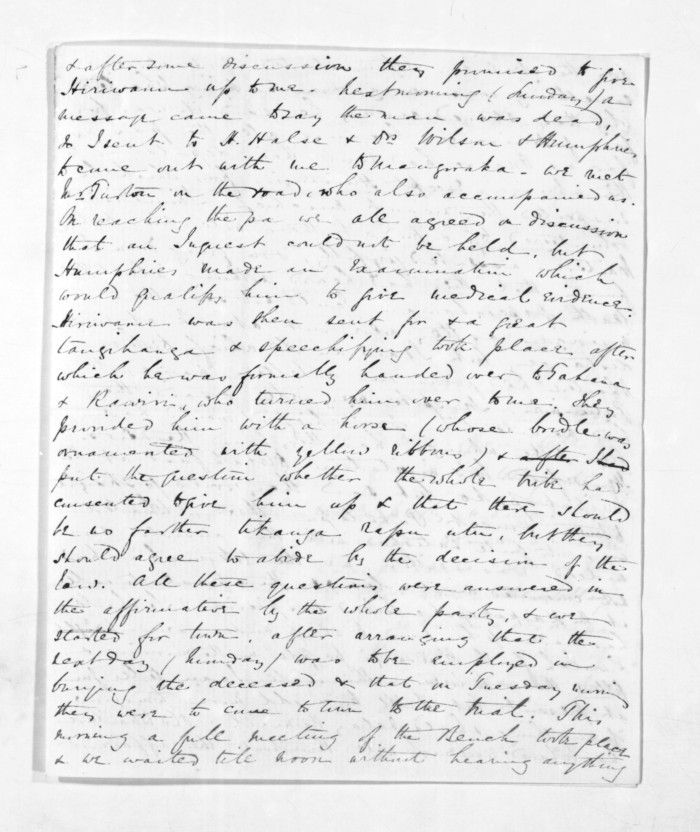 & after some discussion they promised to give
Hiriwanu up to me. Next morning (Sunday) a
message came to say the man was dead,
& I sent to H. Halse & Drs Wilson & Humphries
to come out with me to Mangoraka - we met
Mr Turton on the road who also accompanied us.
On reaching the pa we all agreed on discussion
that an Inquest could not be held, but
Humphries made an Examination which
would qualify him to give medical evidence.
Hiriwanu was then sent for & a great
tangihanga & speechifying took place after
which he was formally handed over to Tahana
& Rawiri, who turned him over to me. They
provided him with a horse (whose bridle was
ornamented with yellow ribbons) & after I had
put the question whether the whole tribe had
consented to give him up & that there should
be no farther tikanga utu, but they
should agree to abide by the decision of the
law. All these questions were answered in
the affirmative by the whole party, & we
started for town, after arranging that the
next day (Monday) was to be employed in
burying the deceased & that on Tuesday morning
they were to come to town to the trial. This
morning a full meeting of the Bench took place
& we waited till noon without hearing anything